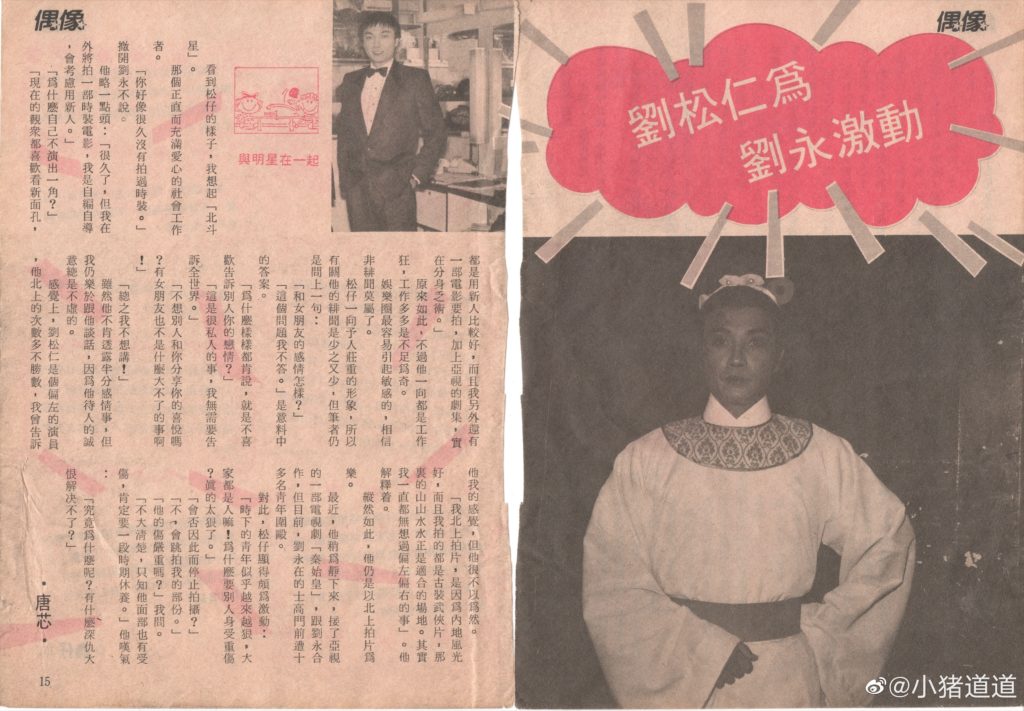 偶像
劉松仁爲
劉永激動
偶像
與明星在一起
看到松仔的樣子，我想起「北斗
星」。
那個正直而充滿愛心的社會工作
者。
「你好像很久沒有拍過時裝。」
撇開劉永不說。
他略一點頭：「很久了，但我在
外將拍一部時裝電影，我是自編自導
，會考慮用新人。」
「爲什麼自己不演出一角？」
「現在的觀衆都喜歡看新面孔，
都是用新人比較好，而且我另外還有
一部電影要拍，加上亞視的劇集，實
在分身乏術。」
原來如此，不過他一向都是工作
狂，工作多多是不足爲奇。
娛樂圈最容易引起敏感的，相信
非緋聞莫屬了。
松仔一向予人莊重的形象，所以
有關他的緋聞是少之又少，但筆者仍
是問上一句：
「和女朋友的感情怎樣？」
「這個問題我不答。」是意料中
的答案。
「爲什麼樣樣都肯說，就是不喜
歡告訴別人你的戀情？」
「這是很私人的事，我無需要告
訴全世界。」
「不想別人和你分享你的喜悅嗎
？有女朋友也不是什麼大不了的事啊
！」
「總之我不想講！」
雖然他不肯透露半分感情事，但
我仍樂於跟他談話，因爲他待人的誠
意總是不虛的。
感覺上，劉松仁是個偏左的演員
，他北上的次數多不勝數，我曾告訴
他我的感覺，但他很不以爲然。
「我北上拍片，是因爲內地風光
好，而且我拍的都是古裝武俠片，那
裏的山山水水正是適合的場地。其實
我一直都無想過偏左偏右的事」。他
解釋着。
縱然如此，他仍是以北上拍片爲
樂。
最近，他稍爲靜下來，接了亞視
的一部電視劇「秦始皇」，跟劉永合
作，但目前，劉永在的士高門前遭十
多名青年圍毆。
對此，松仔顯得頗爲激動：
「時下的青年似乎越來越狠，大
家都是人嘛！爲什麼要別人身受重傷
？眞的太狠了。」
「會否因此而停止拍攝？」
「不，會跳拍我的部份。」
「他的傷嚴重嗎？」我問。
「不大清楚，只知他面部也有受
傷，肯定要一段時期休養。」他嘆氣
：
「究竟爲什麼呢？有什麼深仇大
恨解決不了？」
•唐芯•
15
@小猪道道